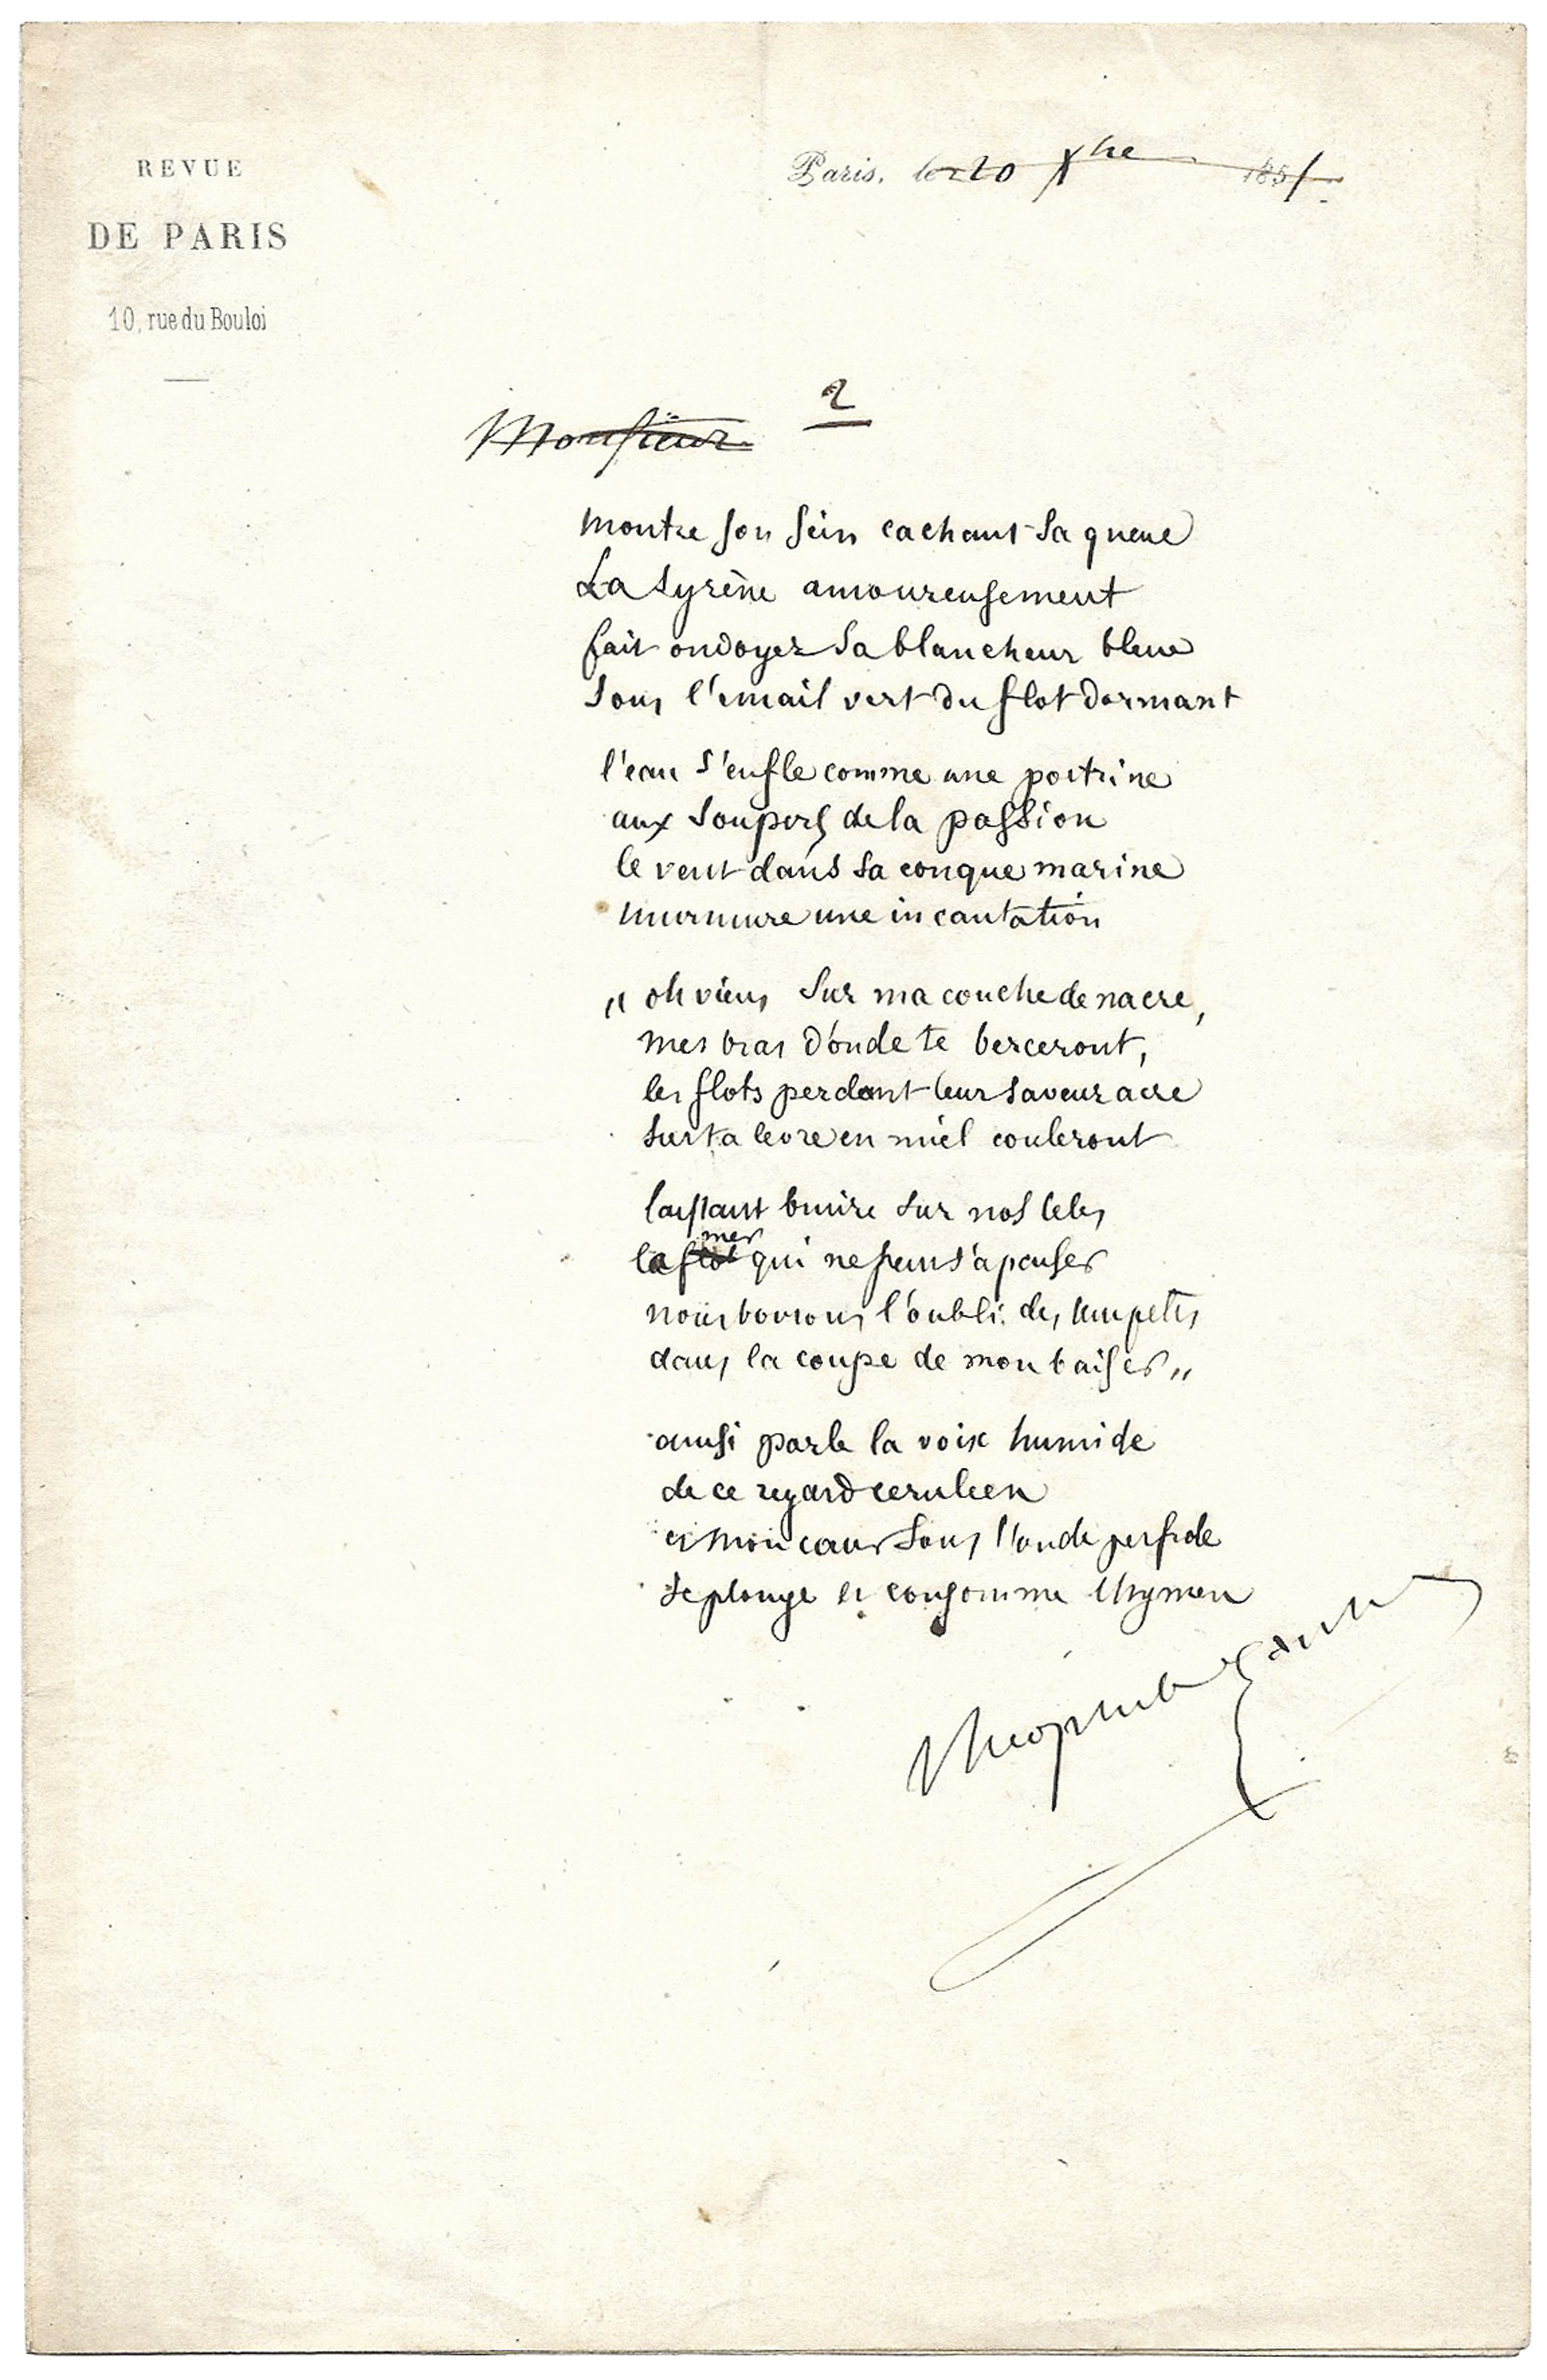 REVUE
DE PARIS
10, rue du Bouloi
Paris, le 20 Xbre 1851
2
Monsieur
montre son sein cachant sa queue
La syrène amoureusement
fait ondoyer sa blancheur bleue
sous l'email vert du flot dormant
l'eau s'enfle comme une poitrine
aux soupirs de la passion
le vent dans sa conque marine
murmure une incantation
" oh viens sur ma couche de nacre,
mes bras d'onde te berceront,
les flots perdant leur saveur acre
sur ta levre en miel couleront
laissant bruire sur nos tetes
la flot mer qui ne peut s'apaiser
nous boirons l'oubli des tempetes
dans la coupe de mon baiser "
ainsi parle la voix humide
de ce regard ceruleen
et mon cœur sous l'onde perfide
se plonge et consomme l'hymen
Theophile Gautier